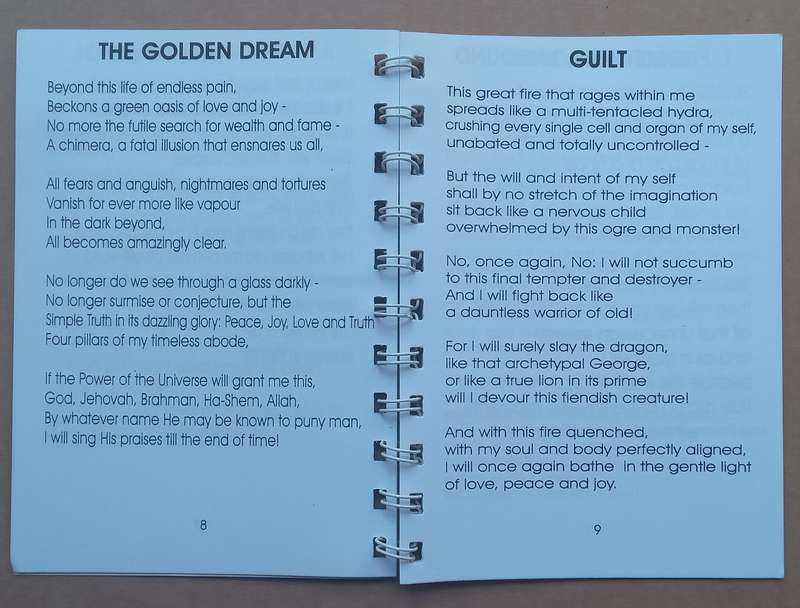 THE GOLDEN DREAM
Beyond this life of endless pain,
Beckons a green oasis of love and joy -
No more the futile search for wealth and fame -
A chimera, a fatal illusion that ensnares us all,
All fears and anguish, nightmares and tortures
Vanish for ever more like vapour
In the dark beyond,
All becomes amazingly clear.
No longer do we see through a glass darkly -
No longer surmise or conjecture, but the
Simple Truth in its dazzling glory: Peace, Joy, Love and Truth
Four pillars of my timeless abode,
If the Power of the Universe will grant me this,
God, Jehovah, Brahman, Ha-Shem, Allah,
By whatever name He may be known to puny man,
I will sing His praises till the end of time!
8
GUILT
This great fire that rages within me
spreads like a multi-tentacled hydra,
crushing every single cell and organ of my self,
unabated and totally uncontrolled -
But the will and intent of my self
shall by no stretch of the imagination
sit back like a nervous child
overwhelmed by this ogre and monster!
No, once again, No: I will not succumb
to this final tempter and destroyer -
And I will fight back like
a dauntless warrior of old!
For I will surely slay the dragon,
like that archetypal George,
or like a true lion in its prime
will I devour this fiendish creature!
And with this fire quenched,
with my soul and body perfectly aligned,
I will once again bathe in the gentle light
of love, peace and joy.
9